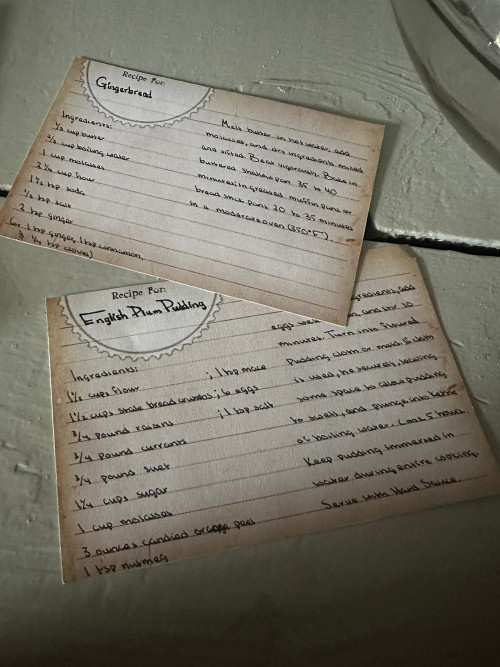 Recipe For:
Gingerbread
Ingredients:
1/3 cup butter
2/3 cup boiling water
1 cup molasses
2 1/4 cup flour
1 1/2 tsp soda
1/2 tsp salt
2 tsp ginger
(or 1 tsp ginger, 1 tsp cinnamon,
3 1/4 tsp cloves)
Melt butter in hot water, add
molasses, and dry ingredients mixed
and sifted. Beat vigorously. Bake in
buttered shallow pan 35 to 40
minutes in greased muffin pans or
bread stick pans 20 to 35 minutes
in a moderate oven (350°F).
Recipe For:
English Plum Pudding
Ingredients:
1 1/2 cups flour ; 1 tsp mace
1 1/2 cups stale bread crumbs ; 6 eggs
3/4 pound raisins ; 1 tsp salt
3/4 pound currants
3/4 pound suet
1 1/4 cups sugar
1 cup molasses
3 ounces candied orange peel
1 tsp nutmeg
ingredients, add
eggs well and stir 20
minutes. Turn into floured
pudding cloth or mold. If cloth
is used, tie securely, leaving
some space to allow pudding
to swell, and plunge into kettle
of boiling water. Cook 5 hours.
Keep pudding immersed in
water during entire cooking.
Serve with Hard Sauce.